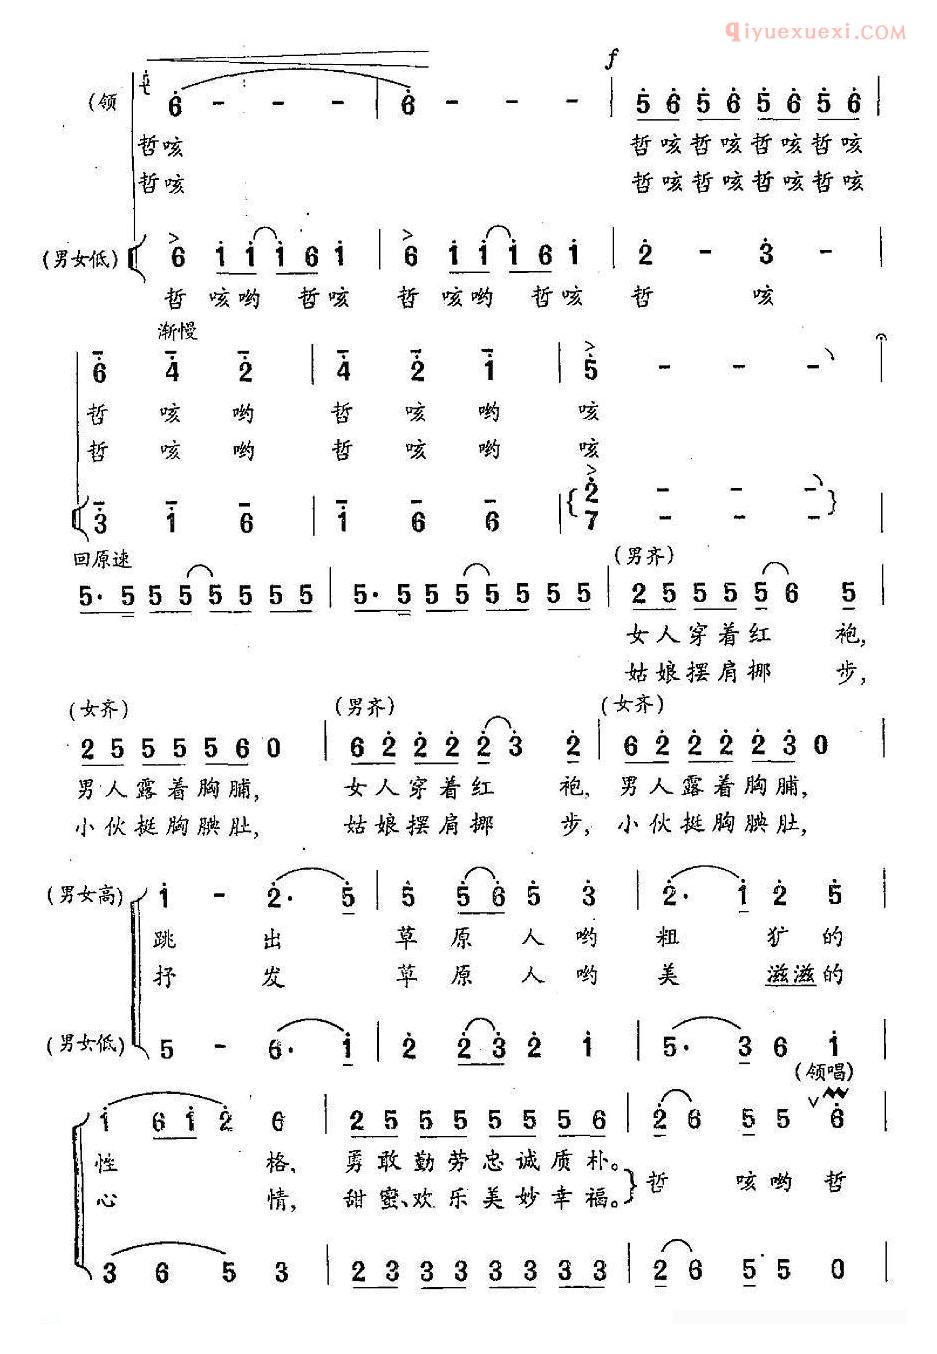 qiyuexuexi.COM
f
(领 6 - - - | 6 - - - | 5 6 5 6 5 6 5 6 |
哲咳 哲咳哲咳哲咳哲咳
哲咳 哲咳哲咳哲咳哲咳
(男女低) 6 1 1 1 6 1 | 6 1 1 1 6 1 | 2 - 3 -
哲 咳哟 哲咳 哲 咳哟 哲咳 哲 咳
渐慢
6 4 2 | 4 2 1 | 5 - - -
哲 咳 哟 哲 咳 哟 咳
哲 咳 哟 哲 咳 哟 咳
3 1 6 | 1 6 6 | { 2 - - - }
7 - - -
回原速 (男齐)
5. 5 5 5 5 5 5 5 | 5. 5 5 5 5 5 5 5 | 2 5 5 5 5 6 5 |
女人穿着红 袍,
姑娘摆肩挪 步,
(女齐) (男齐) (女齐)
2 5 5 5 5 6 0 | 6 2 2 2 2 3 2 | 6 2 2 2 2 3 0 |
男人露着胸脯, 女人穿着红 袍, 男人露着胸脯,
小伙挺胸腆肚, 姑娘摆肩挪 步, 小伙挺胸腆肚,
(男女高) 1 - 2. 5 | 5 5 6 5 3 | 2. 1 2 5 |
跳 出 草 原 人 哟 粗 犷 的
抒 发 草 原 人 哟 美 滋滋的
(男女低) 5 - 6. 1 | 2 2 3 2 1 | 5. 3 6 1 |
(领唱)
1 6 1 2 6 | 2 5 5 5 5 5 5 6 | 2 6 5 5 6
性 格, 勇敢勤劳忠诚质朴。 } 哲 咳哟哲
心 情, 甜蜜、欢乐美妙幸福。
3 6 5 3 | 2 3 3 3 3 3 3 3 | 2 6 5 5 0 |